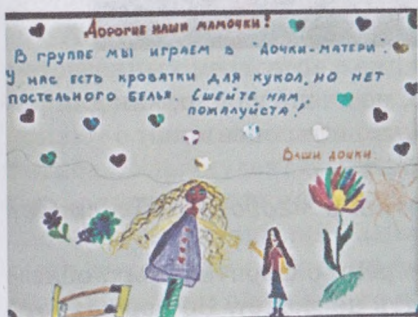 Дорогие наши мамочки!
В группе мы играем в "дочки-матери".
У нас есть кроватки для кукол, но нет
постельного белья. Сшейте нам,
пожалуйста!
Ваши дочки.